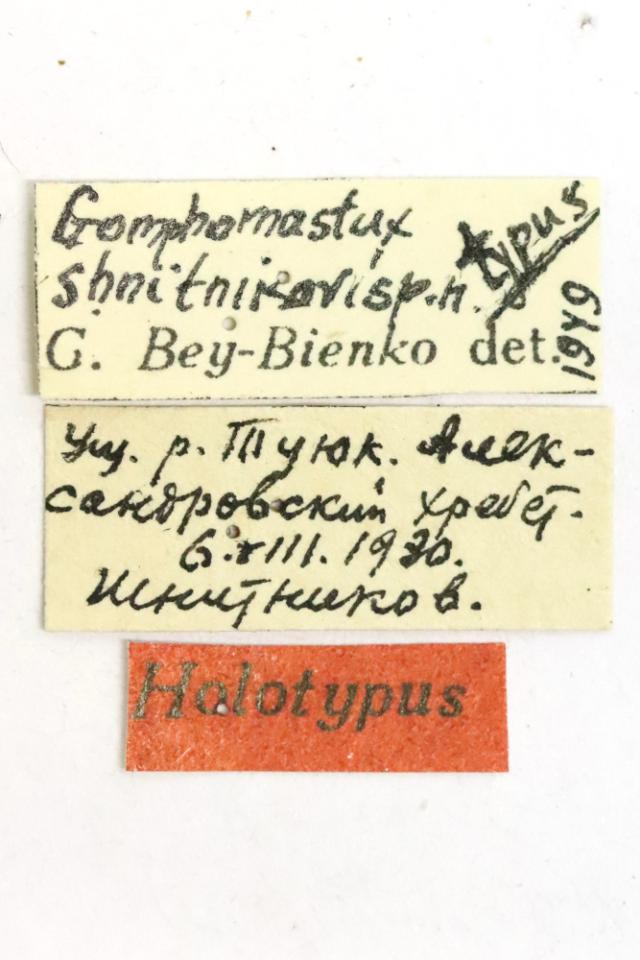 Gomphomastax
shnitnikovi sp.n. typus
G. Bey-Bienko det. 1949
Ущ. р. Туюк. Алек-
сандровский хребет.
6.VIII.1930.
Шнитников.
Holotypus